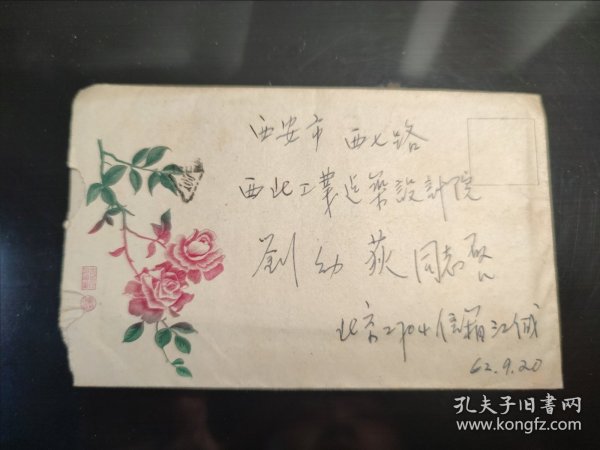 西安市 西七路
西北工業建築設計院
劉幼荻 同志 啟
北京2704信箱江成
62.9.20
孔夫子旧書网
www.kongfz.com